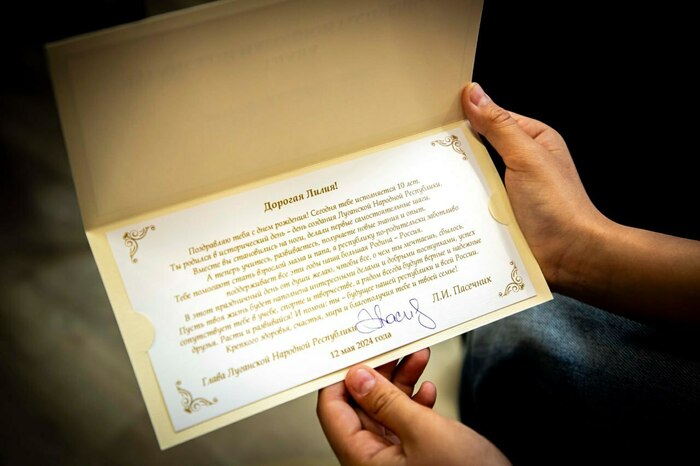 Дорогая Лилия!
Поздравляю тебя с днем рождения! Сегодня тебе исполняется 10 лет.
Ты родился в исторический день – день создания Луганской Народной Республики.
Вместе вы становились на ноги, делали первые самостоятельные шаги.
А теперь учитесь, развиваетесь, получаете новые знания и опыт.
Тебе помогают стать взрослой мама и папа, а республику по-родительски заботливо
поддерживает все эти годы наша большая Родина – Россия.
В этот праздничный день от души желаю, чтобы все, о чем ты мечтаешь, сбылось.
Пусть твоя жизнь будет наполнена интересными делами и добрыми поступками, успех
сопутствует тебе в учебе, спорте и творчестве, а рядом всегда будут верные и надежные
друзья. Расти и развивайся! И помни: ты – будущее нашей республики и всей России.
Крепкого здоровья, счастья, мира и благополучия тебе и твоей семье!
Глава Луганской Народной Республики Л.И. Пасечник
12 мая 2024 года